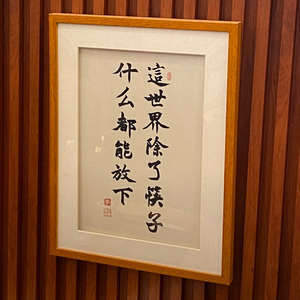 這世界除了筷子
什么都能放下